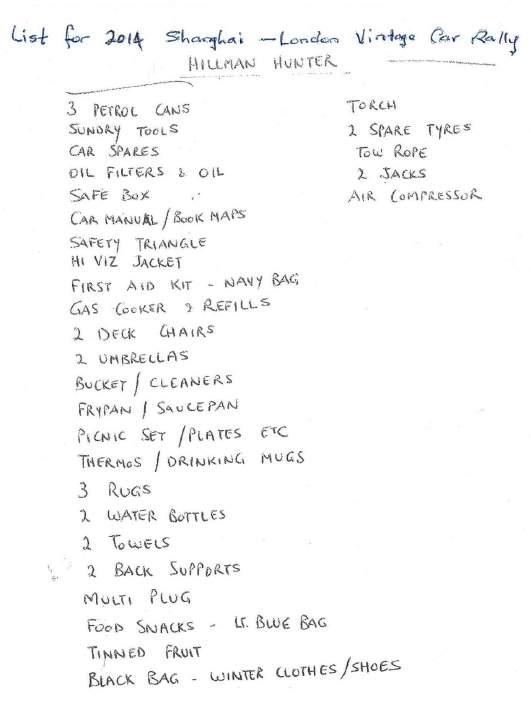 List for 2014 Shanghai - London Vintage Car Rally
HILLMAN HUNTER
3 PETROL CANS
SUNDRY TOOLS
CAR SPARES
OIL FILTERS & OIL
SAFE BOX
CAR MANUAL / BOOK MAPS
SAFETY TRIANGLE
HI VIZ JACKET
FIRST AID KIT - NAVY BAG
GAS COOKER & REFILLS
2 DECK CHAIRS
2 UMBRELLAS
BUCKET / CLEANERS
FRYPAN / SAUCEPAN
PICNIC SET / PLATES ETC
THERMOS / DRINKING MUGS
3 RUGS
2 WATER BOTTLES
2 TOWELS
2 BACK SUPPORTS
MULTI PLUG
FOOD SNACKS - LT. BLUE BAG
TINNED FRUIT
BLACK BAG - WINTER CLOTHES / SHOES
TORCH
2 SPARE TYRES
TOW ROPE
2 JACKS
AIR COMPRESSOR